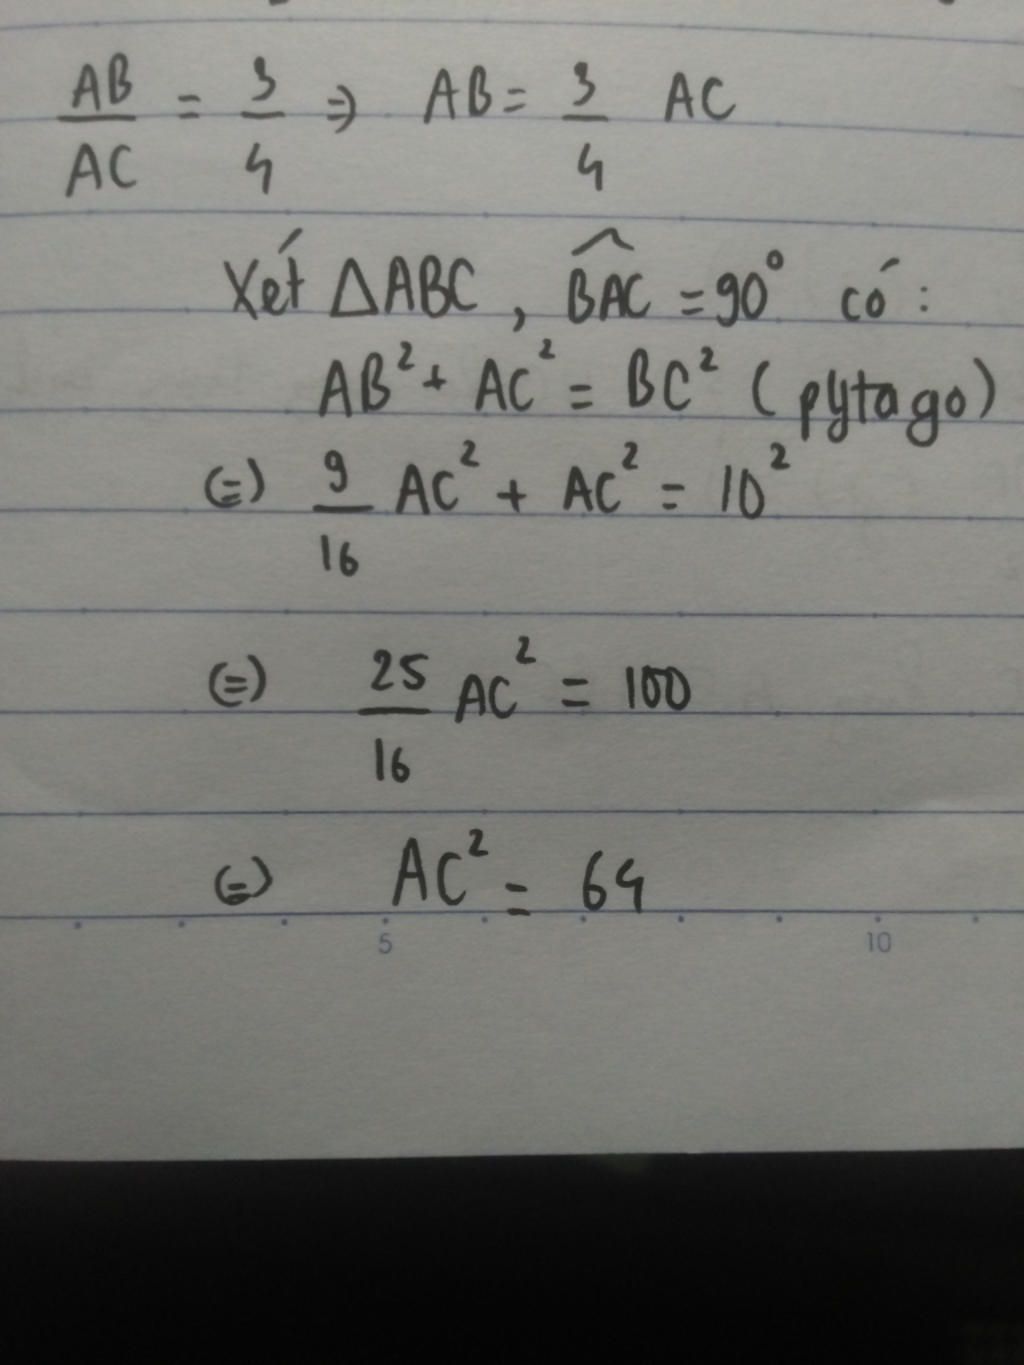 AB/AC = 3/4 => AB = 3/4 AC
Xét △ABC, \widehat{BAC} = 90° có:
AB² + AC² = BC² (pytago)
(=) 9/16 AC² + AC² = 10²
(=) 25/16 AC² = 100
(=) AC² = 64
5 10